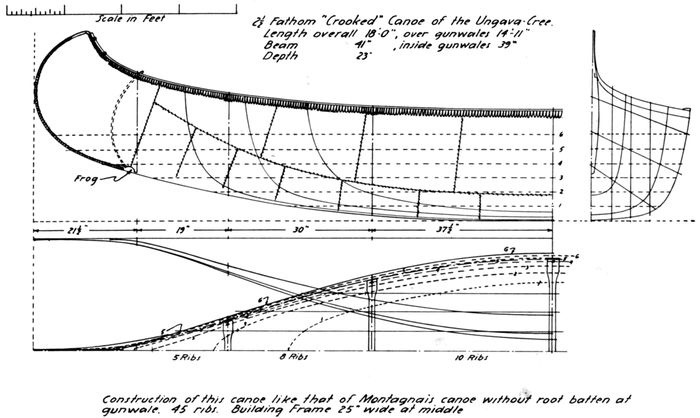 Scale in Feet
2½ Fathom "Crooked" Canoe of the Ungava-Cree.
Length overall 18'-0", over gunwales 14'-11"
Beam 41" , inside gunwales 39"
Depth 23"
6
5
4
3
2
1
Frog
21½" 19" 30" 37½"
5 Ribs 8 Ribs 10 Ribs
Construction of this canoe like that of Montagnais canoe without root batten at
gunwale. 45 ribs. Building Frame 25" wide at middle